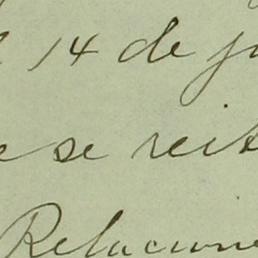 14 de ju
se reit
Relacione